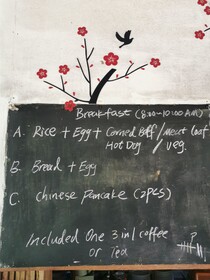 Breakfast (8:00-10:00 AM)
A. Rice + Egg + Corned Beff / Meat Loaf /
Hot Dog veg.
B. Bread + Egg
C. Chinese Pancake (2PCS)
Included One 3 in 1 coffee
or Tea